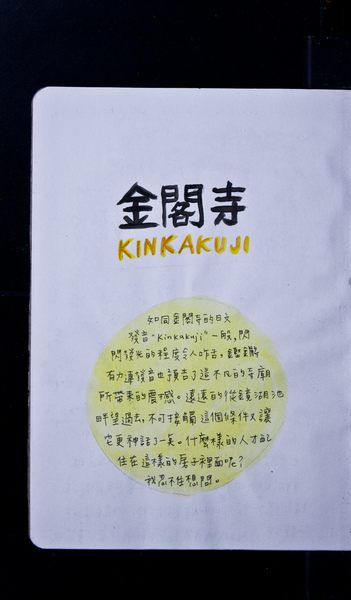 金閣寺
KINKAKUJI
如同金閣寺的日文
發音"Kinkakuji"一般,閃
閃發光的程度令人咋舌,鏗鏘
有力連發音也預告了這不凡的寺廟
所帶來的震撼。遠遠的從鏡湖池
畔望過去,不可接觸這個條件又讓
它更神話了一美。什麼樣的人才配
住在這樣的房子裡面呢?
我忍不住想問。